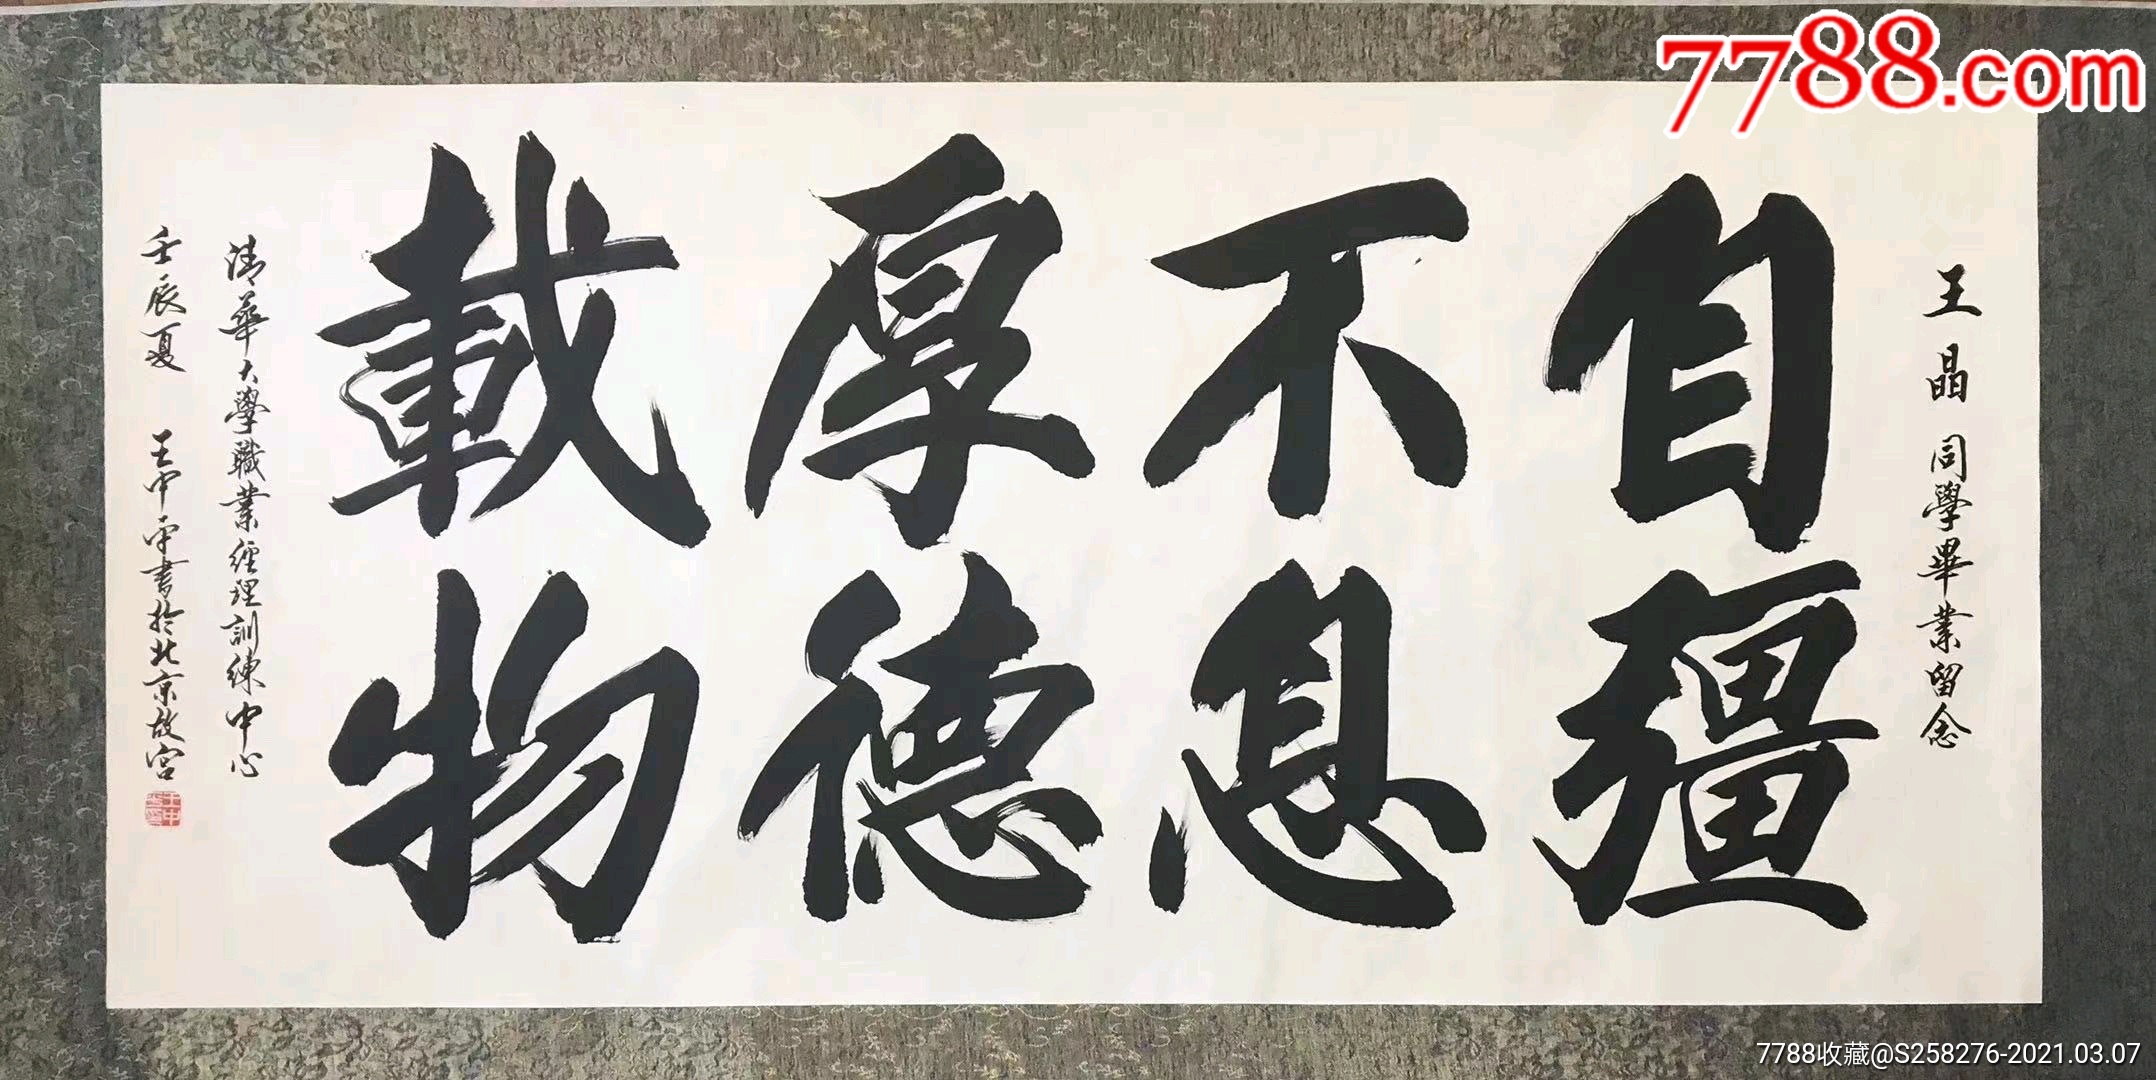 王晶同學畢業留念
自彊
不息
厚德
載物
清華大學職業經理訓練中心
壬辰夏 王中平書於北京故宮
7788.com
7788收藏@S258276-2021.03.07